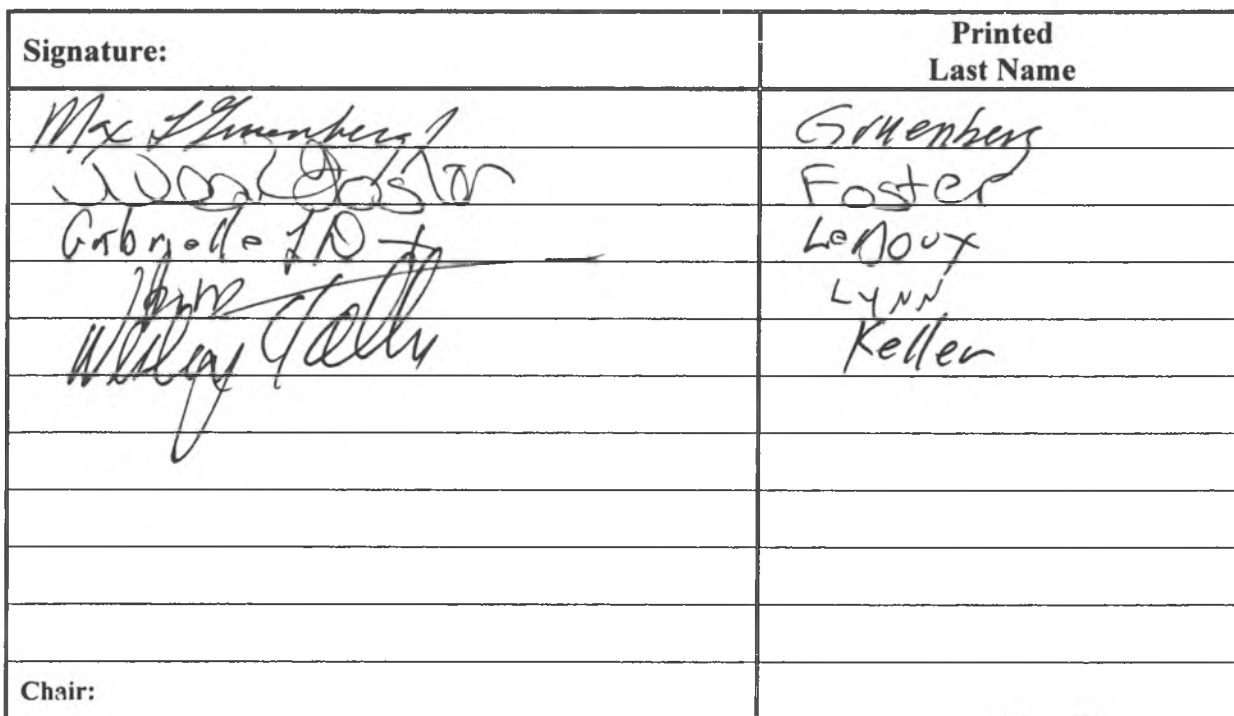 Signature: Printed
Last Name
Max Gruenberg Gruenberg
Foster Foster
Gabrielle LeDoux
Lynn
Keller Keller
Chair: